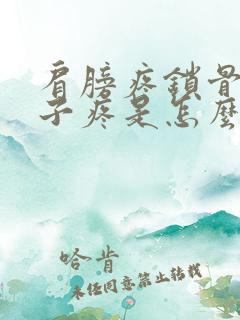 肩膀疼鎖骨
子疼是怎麼
哈肯
未經同意禁止轉載